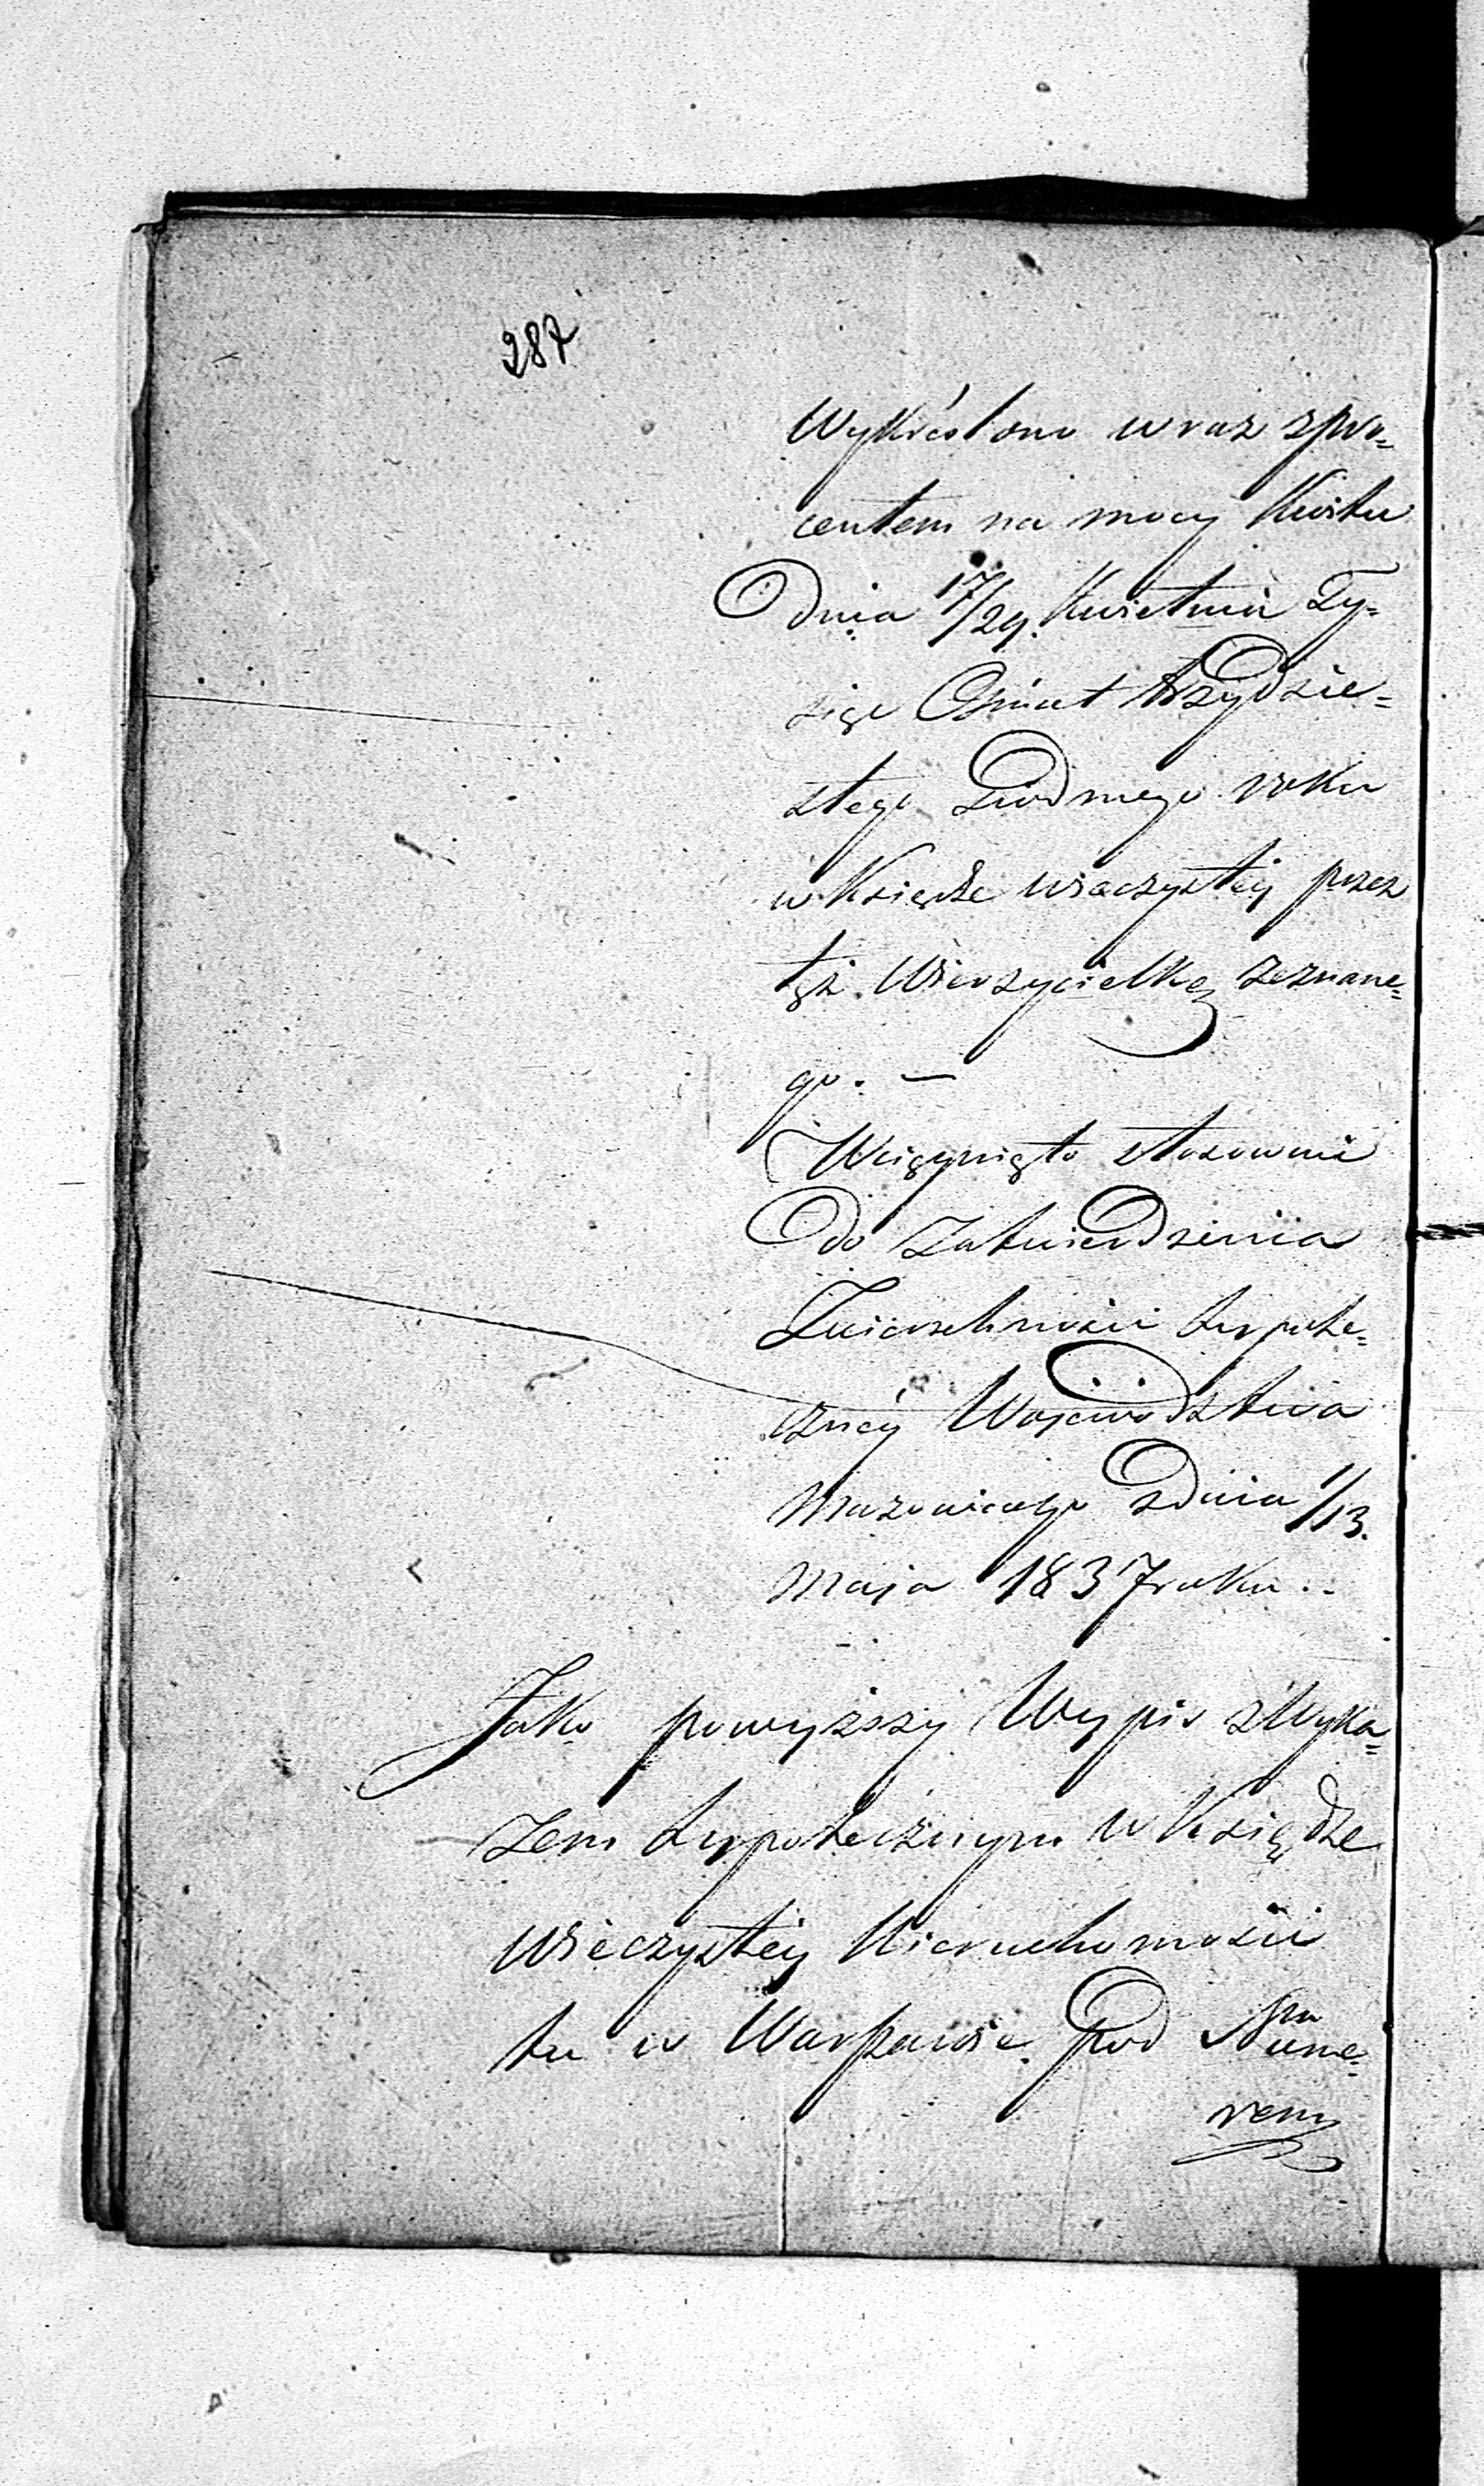 287
Wykréslono wraz z pro=
centem na mocy Kwitu
Dnia 17/29. Kwietnia Ty=
siąc Osmset trzydzie=
stego Siodmego roku
w Księdze wieczystéy przez
tęż Wierzycielkę zeznane=
go. —
Wciągnięto stosownie
do Zatwierdzenia
Zwierzchności hypote=
cznéy Województwa
Mazowieckgo z dnia 1/13.
Maja 1837 roku ..
Jako powyższy Wypis z Wyka=
zem hypotecznym w Księdze
Wieczystéy Nieruchomości
tu w Warszawie pod Nume=
rem